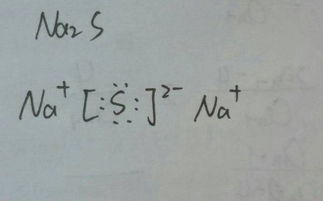 Na₂S
Na⁺ [:S̤̈:]²⁻ Na⁺